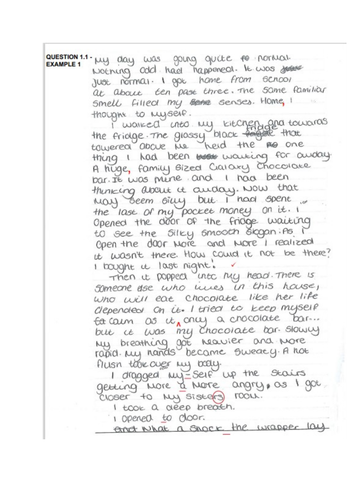 QUESTION 1.1 -
EXAMPLE 1
My day was going quite normal.
Nothing odd had happened. It was
just normal. I got home from school
at about ten past three. The same familiar
smell filled my senses. Home, I
thought to myself.
I walked into my kitchen, and towards
the fridge. The glassy black fridge that
towered above me held the one
thing I had been waiting for all day.
A huge, family sized Galaxy chocolate
bar. It was mine and I had been
thinking about it all day. Now that
may seem silly but I had spent
the last of my pocket money on it. I
opened the door of the fridge waiting
to see the silky smooth slogan. As I
open the door more and more I realized
it wasn't there. How could it not be there?
I bought it last night!
Then it popped into my head. There is
someone else who lives in this house,
who will eat chocolate like her life
depended on it. I tried to keep myself
calm as it only a chocolate bar...
but it was my chocolate bar. Slowly
my breathing got heavier and more
rapid. My hands became sweaty. A hot
flush took over my body.
I dragged my-self up the stairs
getting more a more angry, as I got
closer to my sisters room.
I took a deep breath.
I opened to door.
And what a shock the wrapper lay